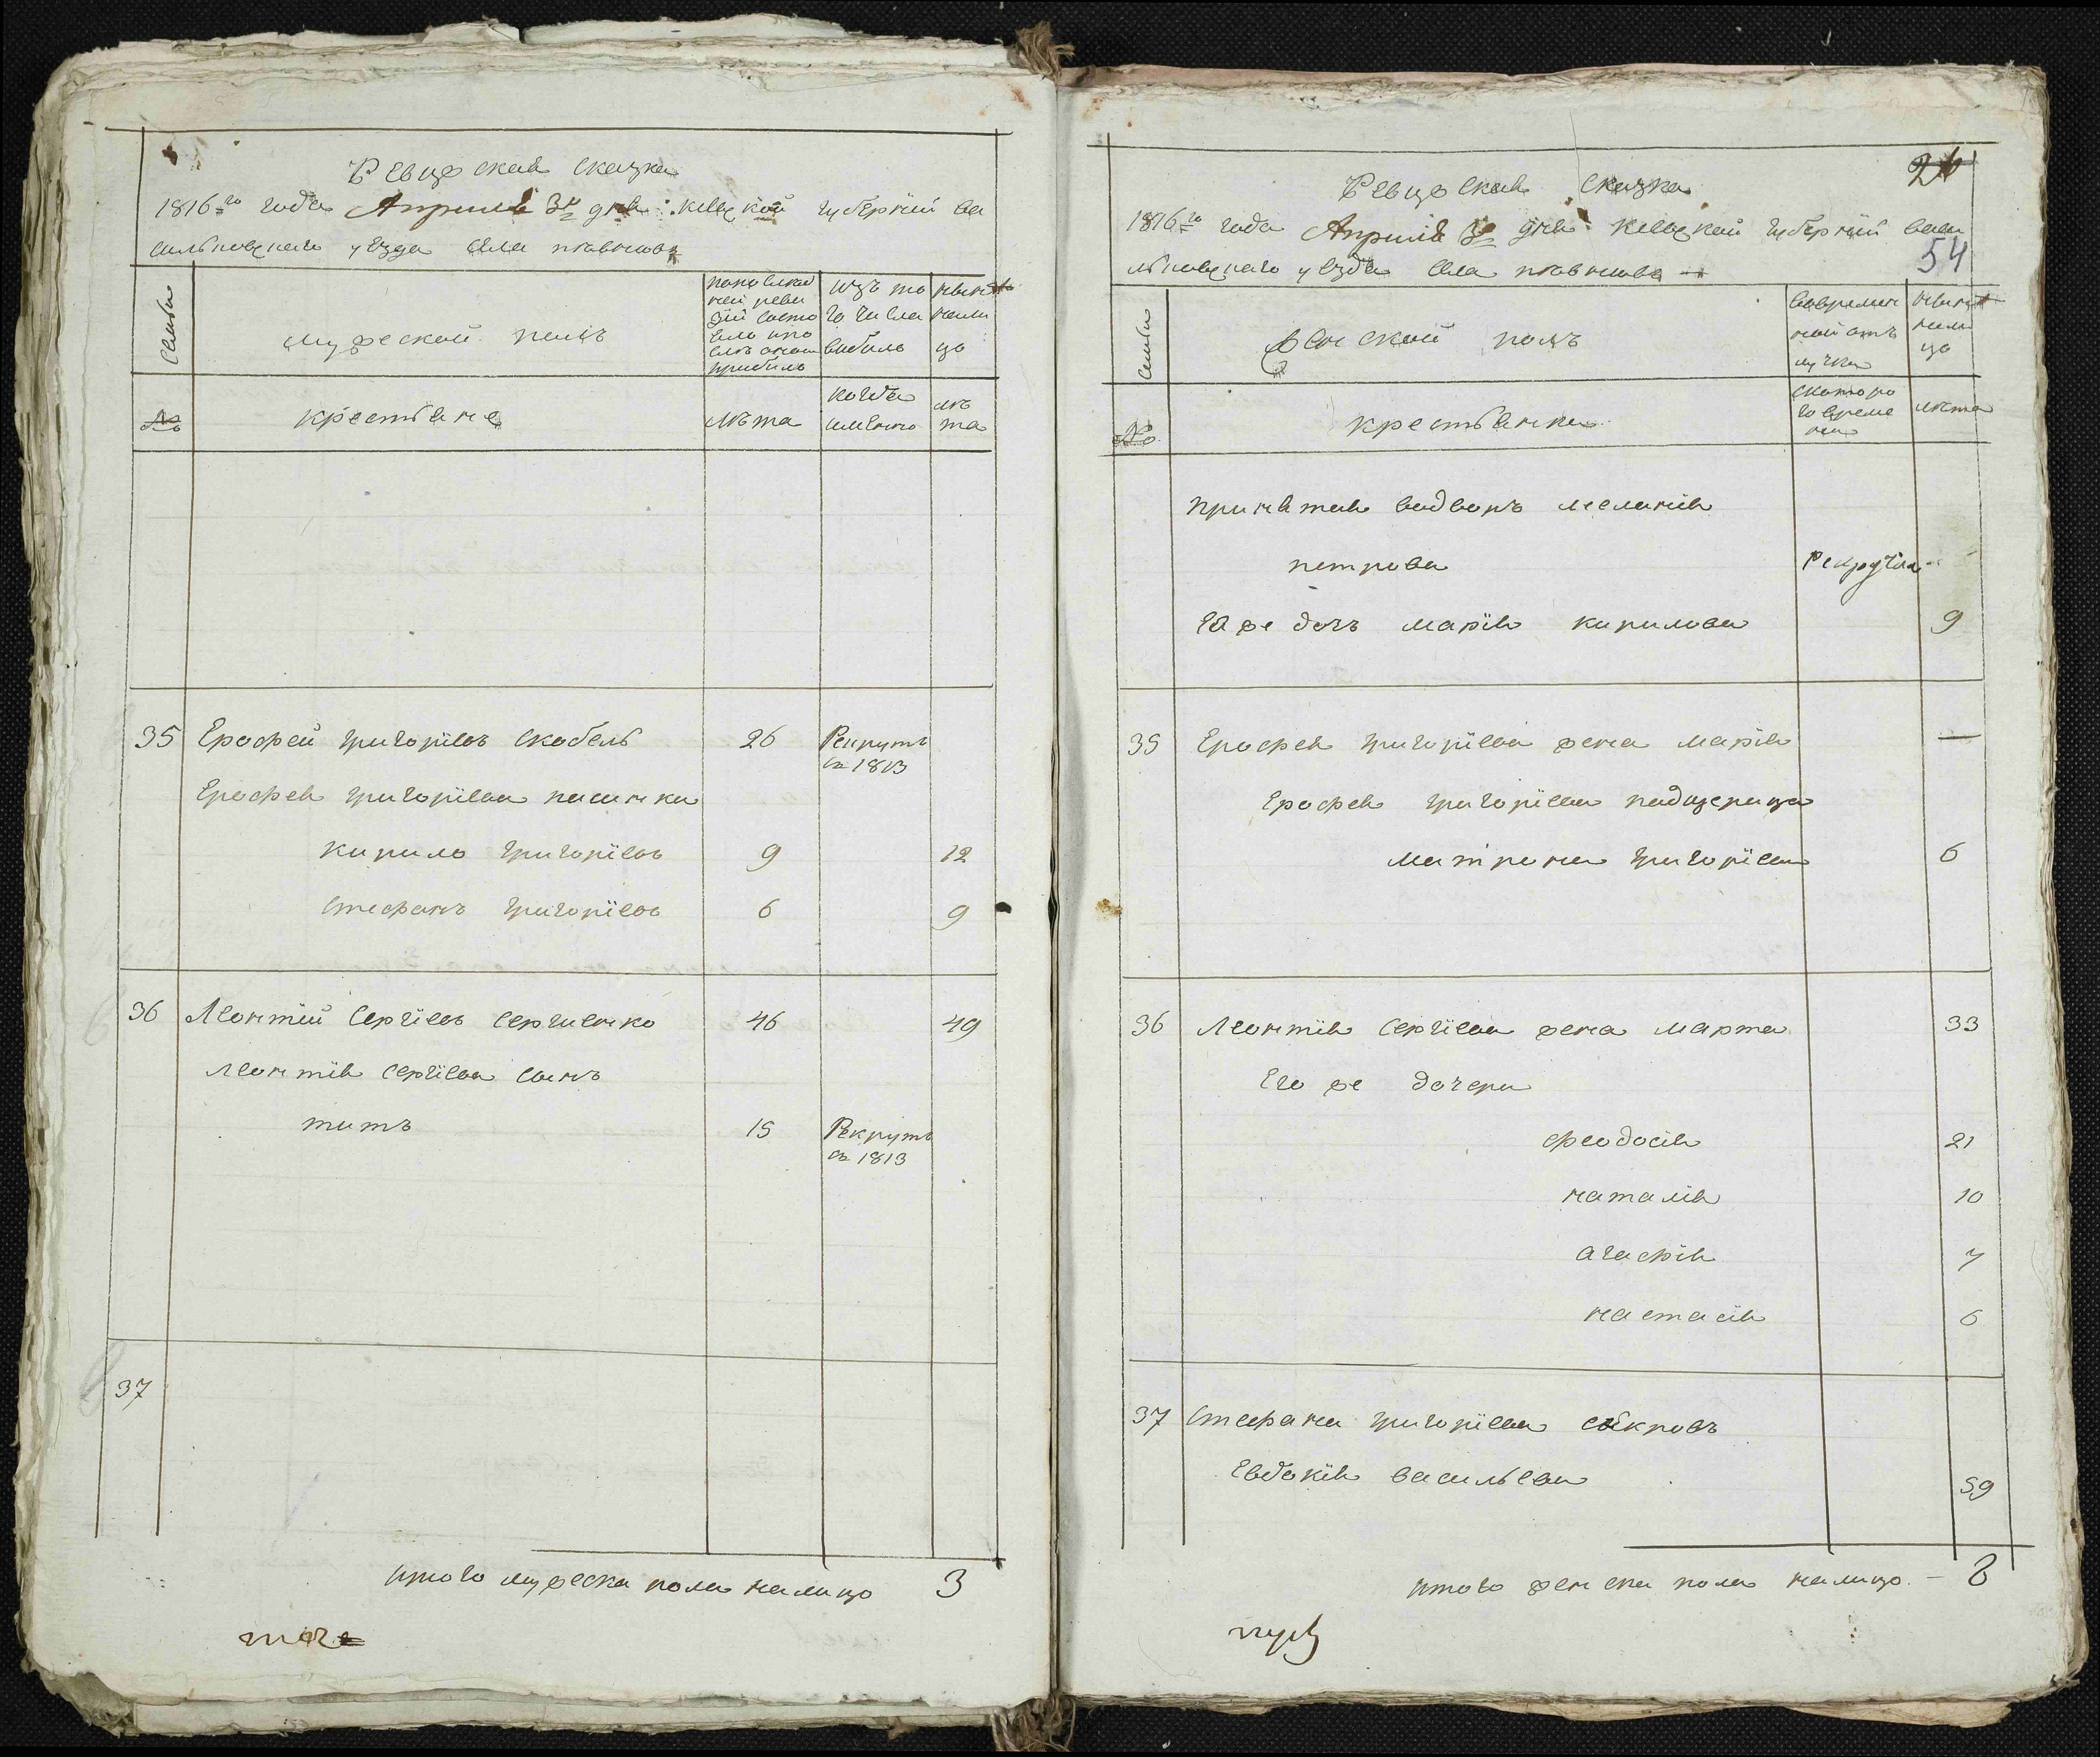 Ревизская сказка
1816го года Апреля 3 дня Киевской губернии ва
сильковскаго уезда села
Семьи
мужеской полъ
по последней ревизии состояло и после оной прибыло
изъ того числа выбыло
ныне на лицо
№
крестьяне
лета
когда именно
лета
35 Ерофей григорїевъ скобель 26 Рекрутъ
въ 1813
Ерофея григорїева пасинки
кирило григорїевъ 9 12
стефанъ григорїевъ 6 9
36 Леонтїй сергїевъ сергиенко 46 49
леонтїя сергїева сынъ
титъ 15 Рекрутъ
въ 1813
37
итого мужеска пола налицо 3
Ревизская сказка
26
1816го года Апреля 3 дня Киевской губернїй васи
льковскаго уезда села
54
Семьи
женской полъ
во временной отлучке
ныне на лицо
№
крестьянки
с котораго времени
лета
принятая водворъ меланїя
петрова Рекрутка
Ея же дочь марїя кирилова 9
35 Ерофея григорїева жена марїя —
Ерофея григорїева падщерица
матрона григорїева 6
36 Леонтїя сергїева жена марта 33
Его же дочери
феодосїя 21
наталїя 10
агафїя 7
настасїя 6
37 стефана григорїева свекровъ
Евдокїя васильева 59
итого женска пола налицо — 8